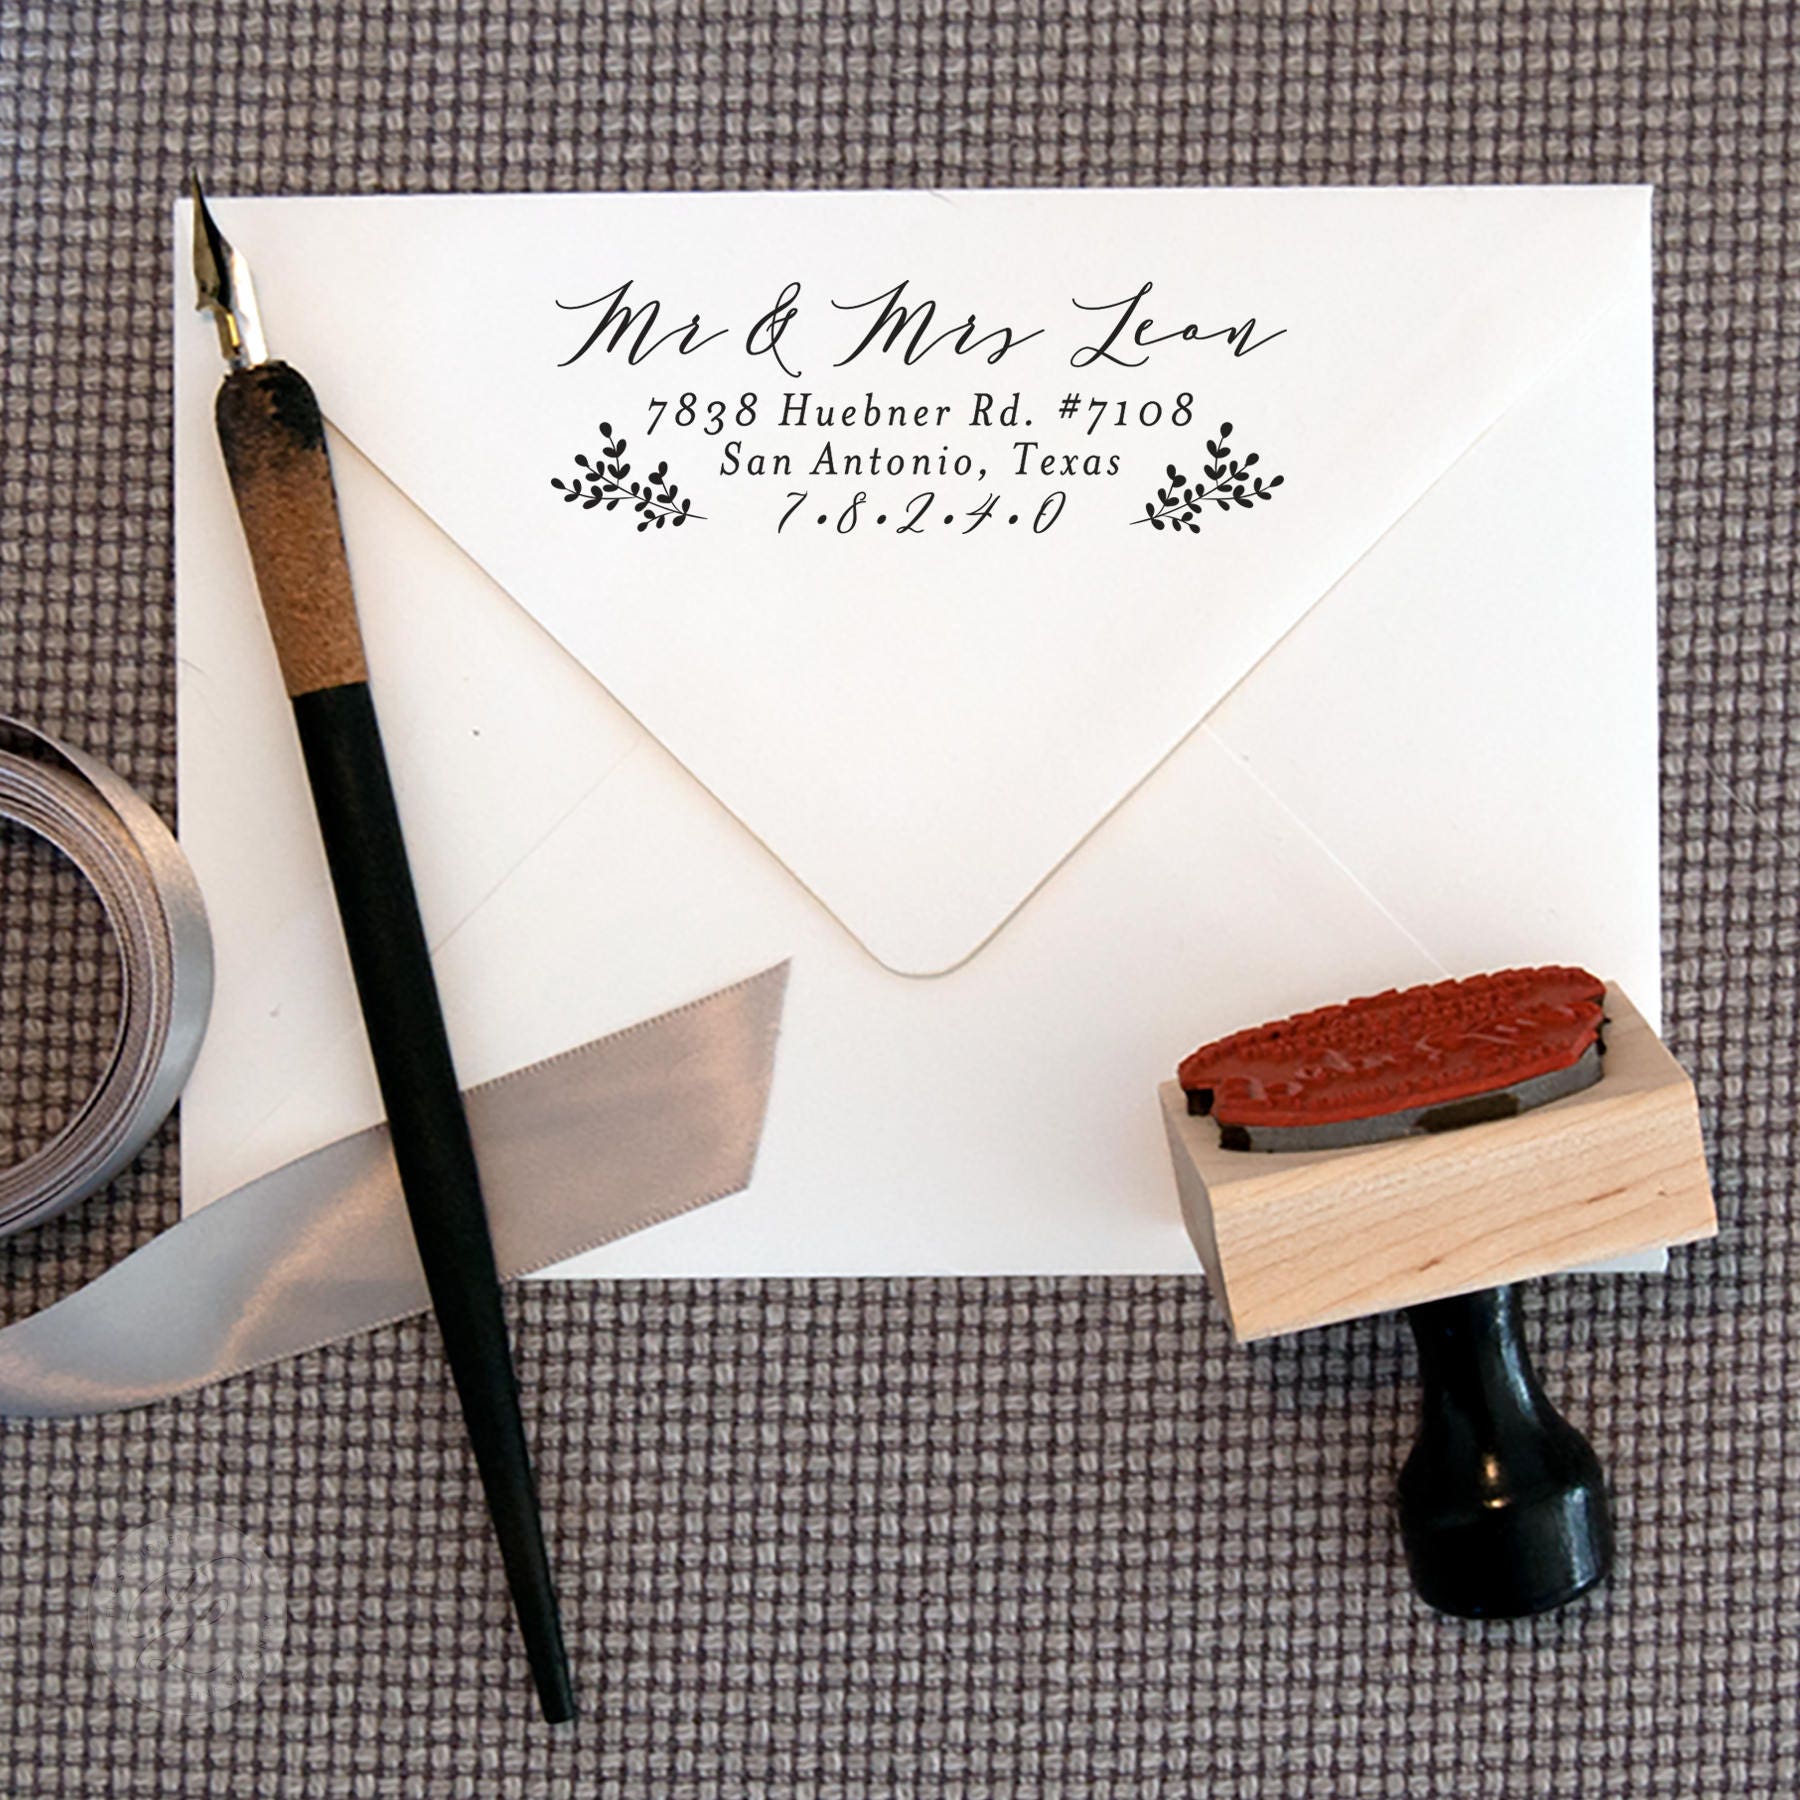 Mr & Mrs Leon
7838 Huebner Rd. #7108
San Antonio, Texas
7.8.2.4.0